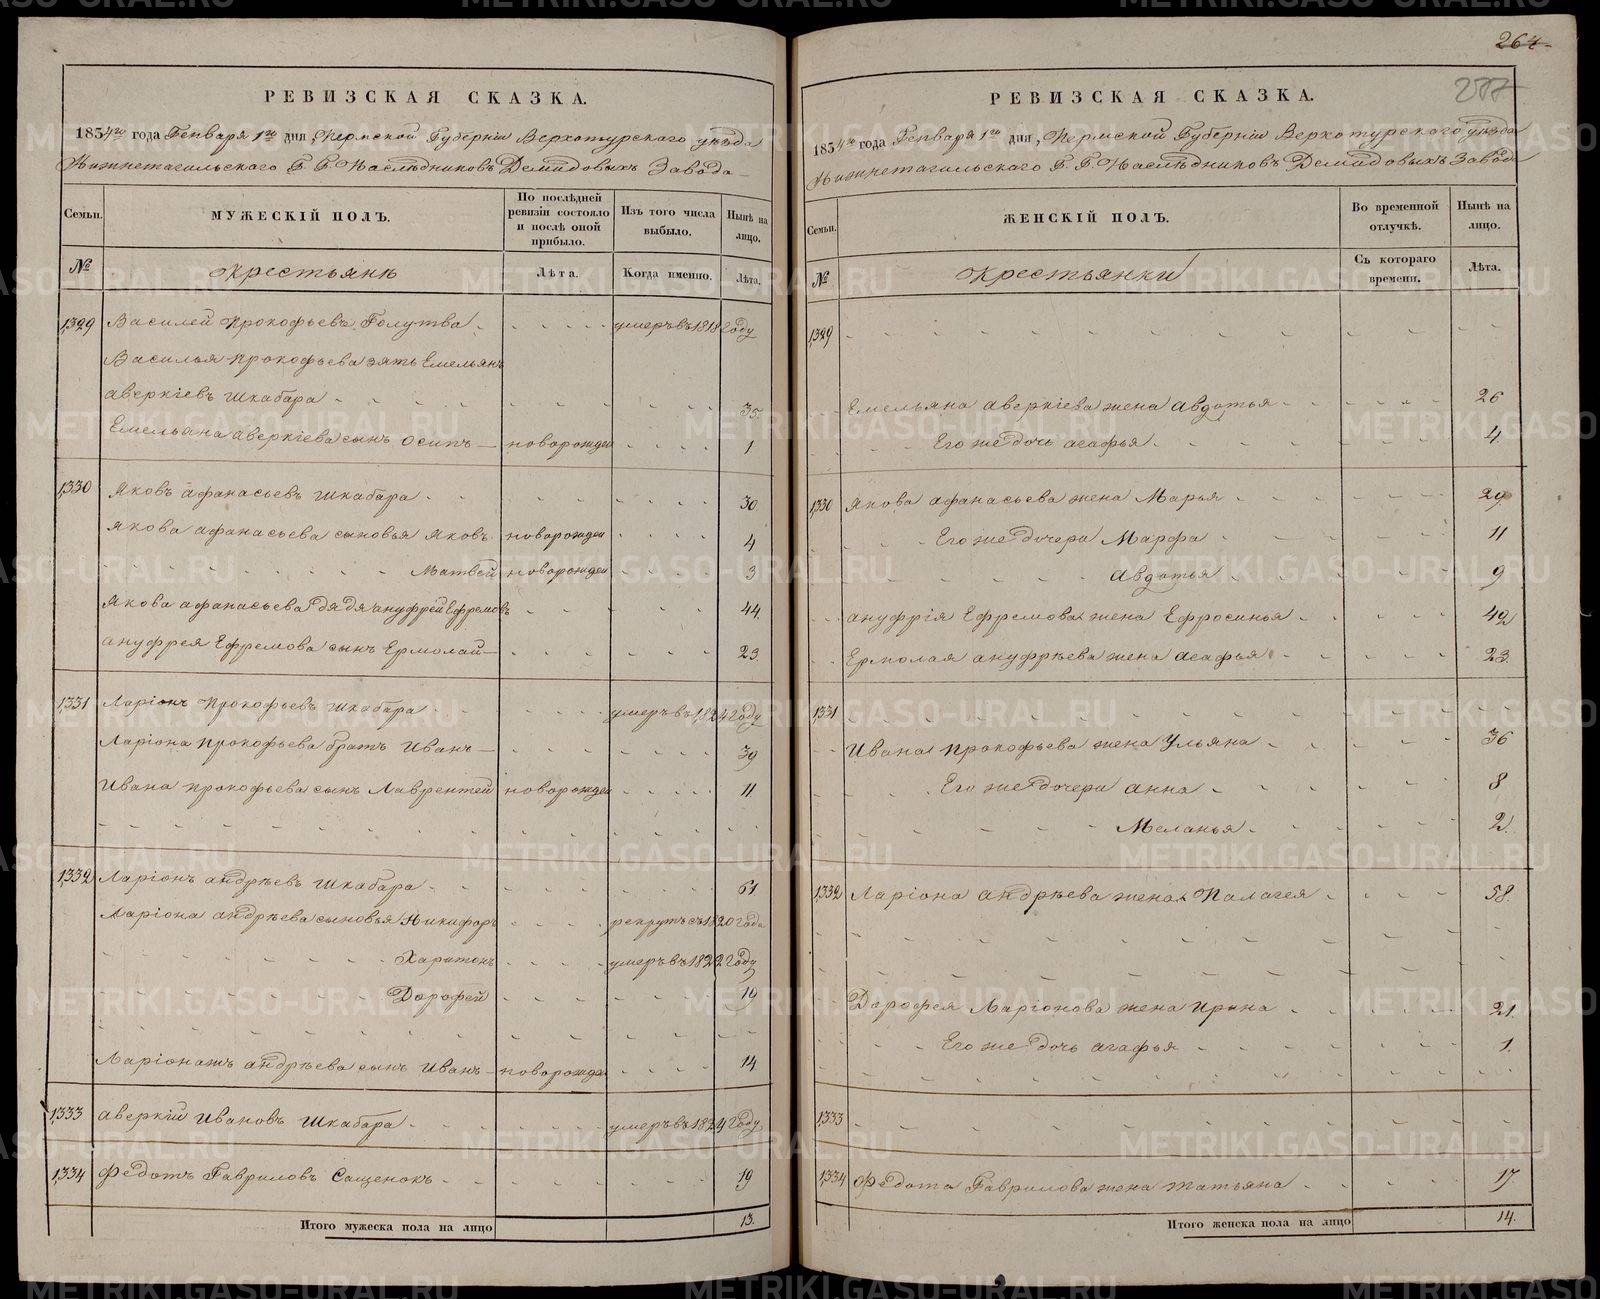 264
277
РЕВИЗСКАЯ СКАЗКА.
1834го года Генваря 1го дня, Пермской Губерніи Верхотурскаго уѣзда
Нижнетагильскаго Г. Г. Наслѣдниковъ Демидовыхъ Завода
Семьи. МУЖЕСКІЙ ПОЛЪ. По послѣдней ревизіи состояло и послѣ оной прибыло. Изъ того числа выбыло. Нынѣ на лицо.
№ Крестьянѣ Лѣта. Когда именно. Лѣта.
1329 Василей Прокофьевъ Голутва умеръ въ 1818 году
Василья Прокофьева зять Емельянъ
аверкіевъ Шкабара 35
Емельяна аверкіева сынъ Осипъ новорожден 1
1330 Яковъ афанасьевъ Шкабара 30
Якова афанасьева сыновья Яковъ новорожден 4
Матвей новорожден 3
Якова афанасьева дядя ануфрей Ефремовъ 44
ануфрея Ефремова сынъ Ермолай 23
1331 Ларіонъ Прокофьевъ Шкабара умеръ въ 1824 году
Ларіона Прокофьева братъ Иванъ 39
Ивана Прокофьева сынъ Лаврентей новорожден 11
1332 Ларіонъ андрѣевъ Шкабара 61
Ларіона андрѣева сыновья Никифоръ рекрутъ съ 1820 года
Харитонъ умеръ въ 1822 году
Дорофей 19
Ларіонажъ андрѣева сынъ Иванъ новорожден 14
1333 аверкій Ивановъ Шкабара умеръ въ 1824 году
1334 Федотъ Гавриловъ Сащенокъ 19
Итого мужеска пола на лицо 13.
РЕВИЗСКАЯ СКАЗКА.
1834го года Генваря 1го дня, Пермской Губерніи Верхотурскаго уѣзда
Нижнетагильскаго Г. Г. Наслѣдниковъ Демидовыхъ Завода
Семьи. ЖЕНСКІЙ ПОЛЪ. Во временной отлучкѣ. Нынѣ на лицо.
№ Крестьянки Съ котораго времени. Лѣта.
1329
Емельяна аверкіева жена авдотья 26
Его же дочь агафья 4
1330 Якова афанасьева жена Марья 29
Его же дочери Марфа 11
авдотья 9
ануфрія Ефремова жена Ефросинья 42
Ермолая ануфрѣева жена агафья 23
1331
Ивана Прокофьева жена Ульяна 36
Его же дочери анна 8
Меланья 2
1332 Ларіона андрѣева жена Палагея 58
Дорофея Ларіонова жена Ирина 21
Его же дочь агафья 1
1333
1334 Федота Гаврилова жена Татьяна 17
Итого женска пола на лицо 14.
METRIKI.GASO-URAL.RU